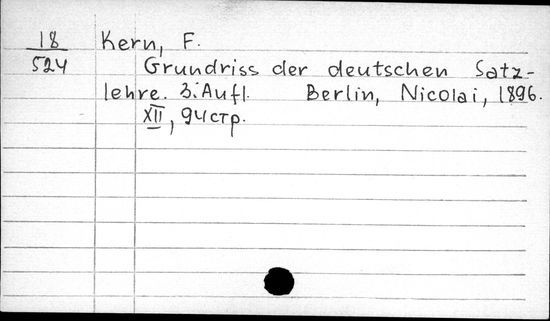 18 Kern, F.
524 Grundriss der deutschen Satz-
lehre. 3. Aufl. Berlin, Nicolai, 1896.
XII, 94 стр.